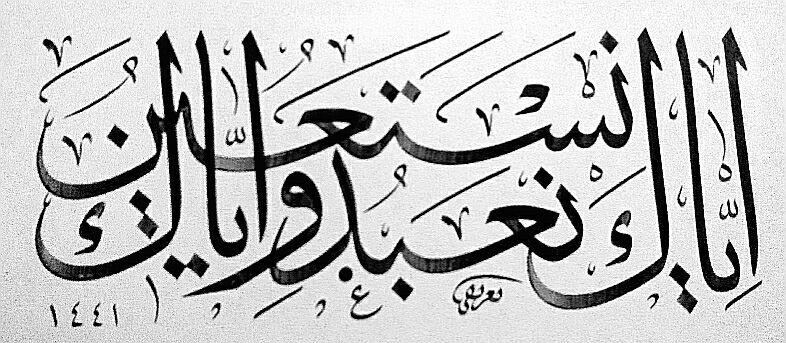 اِيَّاكَ نَعْبُدُ وَاِيَّاكَ نَسْتَعِينُ
١٤٤١